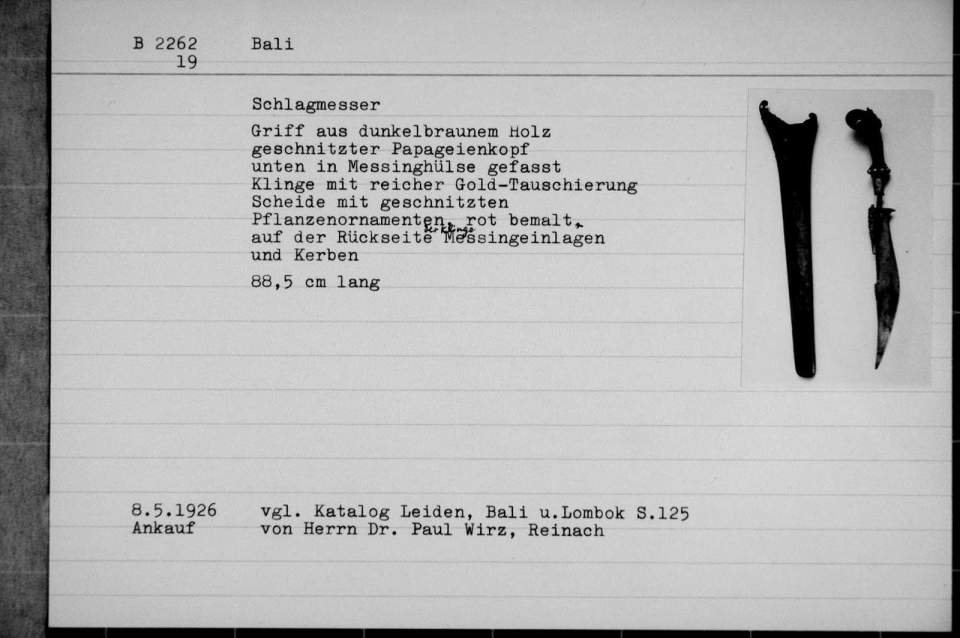 B 2262 Bali
19
Schlagmesser
Griff aus dunkelbraunem Holz
geschnitzter Papageienkopf
unten in Messinghülse gefasst
Klinge mit reicher Gold-Tauschierung
Scheide mit geschnitzten
Pflanzenornamenten, rot bemalt,
der Klinge
auf der Rückseite Messingeinlagen
und Kerben
88,5 cm lang
8.5.1926 vgl. Katalog Leiden, Bali u.Lombok S.125
Ankauf von Herrn Dr. Paul Wirz, Reinach